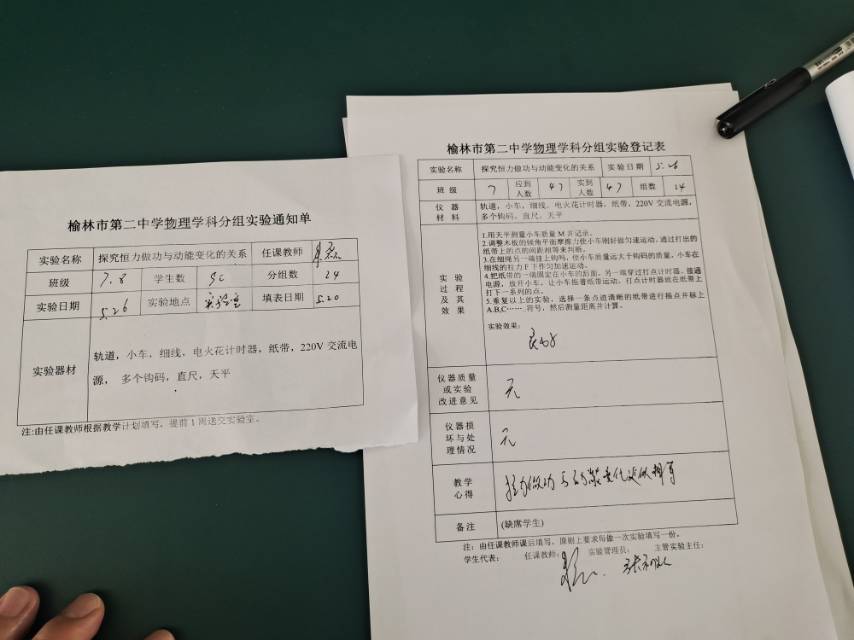 榆林市第二中学物理学科分组实验通知单
实验名称 探究恒力做功与动能变化的关系 任课教师
班级 7.8 学生数 90 分组数 24
实验日期 5.26 实验地点 实验室 填表日期 5.20
实验器材 轨道，小车，细线，电火花计时器，纸带，220V 交流电
源， 多个钩码，直尺，天平
注:由任课教师根据教学计划填写，提前 1 周送交实验室。
榆林市第二中学物理学科分组实验登记表
实验名称 探究恒力做功与动能变化的关系 实验日期 5.26
班级 7 应到人数 47 实到人数 47 组数 24
仪器材料 轨道，小车，细线，电火花计时器，纸带，220V 交流电源，
多个钩码，直尺，天平
实验过程及其效果
1.用天平测量小车质量 M 并记录。
2.调整木板的倾角平衡摩擦力使小车刚好做匀速运动，通过打出的
纸带上的点的间距相等来判断。
3.在细绳另一端挂上钩码，使小车质量远大于钩码的质量，小车在
细线的拉力 F 下作匀加速运动。
4.把纸带的一端固定在小车的后面，另一端穿过打点计时器。接通
电源，放开小车，让小车拖着纸带运动，打点计时器就在纸带上
打下一系列的点。
5.重复以上的实验，选择一条点迹清晰的纸带进行描点并标上
A,B,C……符号，然后测量距离并计算。
实验效果:
良好
仪器质量或实验改进意见 无
仪器损坏与处理情况 无
教学心得 恒力做功与动能变化
备注 (缺席学生)
注：由任课教师课后填写，原则上要求每做一次实验填写一份。
学生代表： 任课教师： 实验管理员： 主管实验主任：